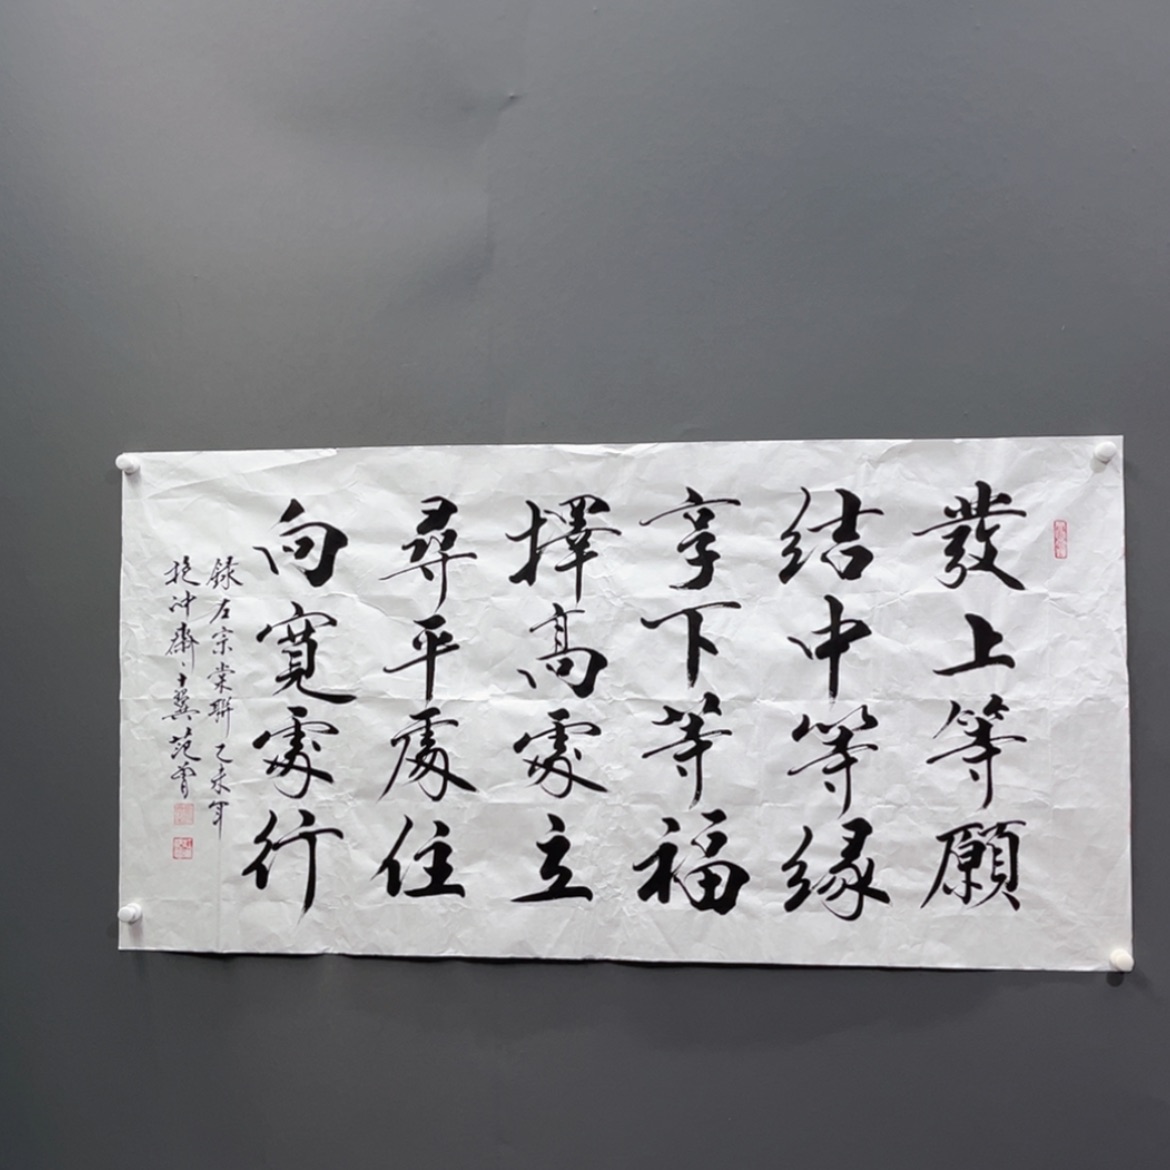 發上等願
结中等缘
享下等福
擇高處立
尋平處住
向寬處行
録左宗棠联乙未年
抱冲齋十翼范曾